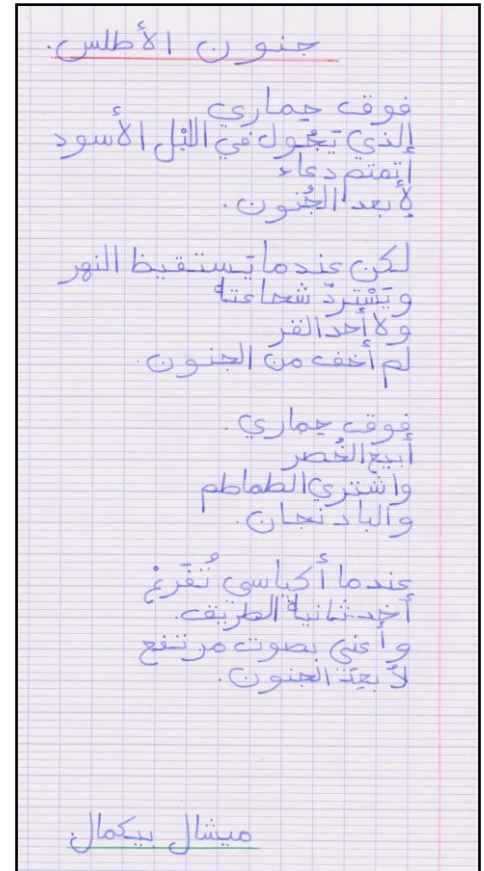 جنون الأطلس.
فوق حماري
الذي يَجُول في اللّيل الأسود
أتمتم دعاء
لإبعد الجُنون.
لكن عندما يَستقيظ النهر
ويَسْتردّ شجاعته
ولا أحد القر
لم أخف من الجنون.
فوق حماري.
أبيع الخُصر
واشتري الطماطم
والبادنجان.
عندما أكياسي تُفَرغ
أخد ثانية الطريق.
وأغني بصوت مرتفع
لأبعِد الجنون.
ميشال بيكمال